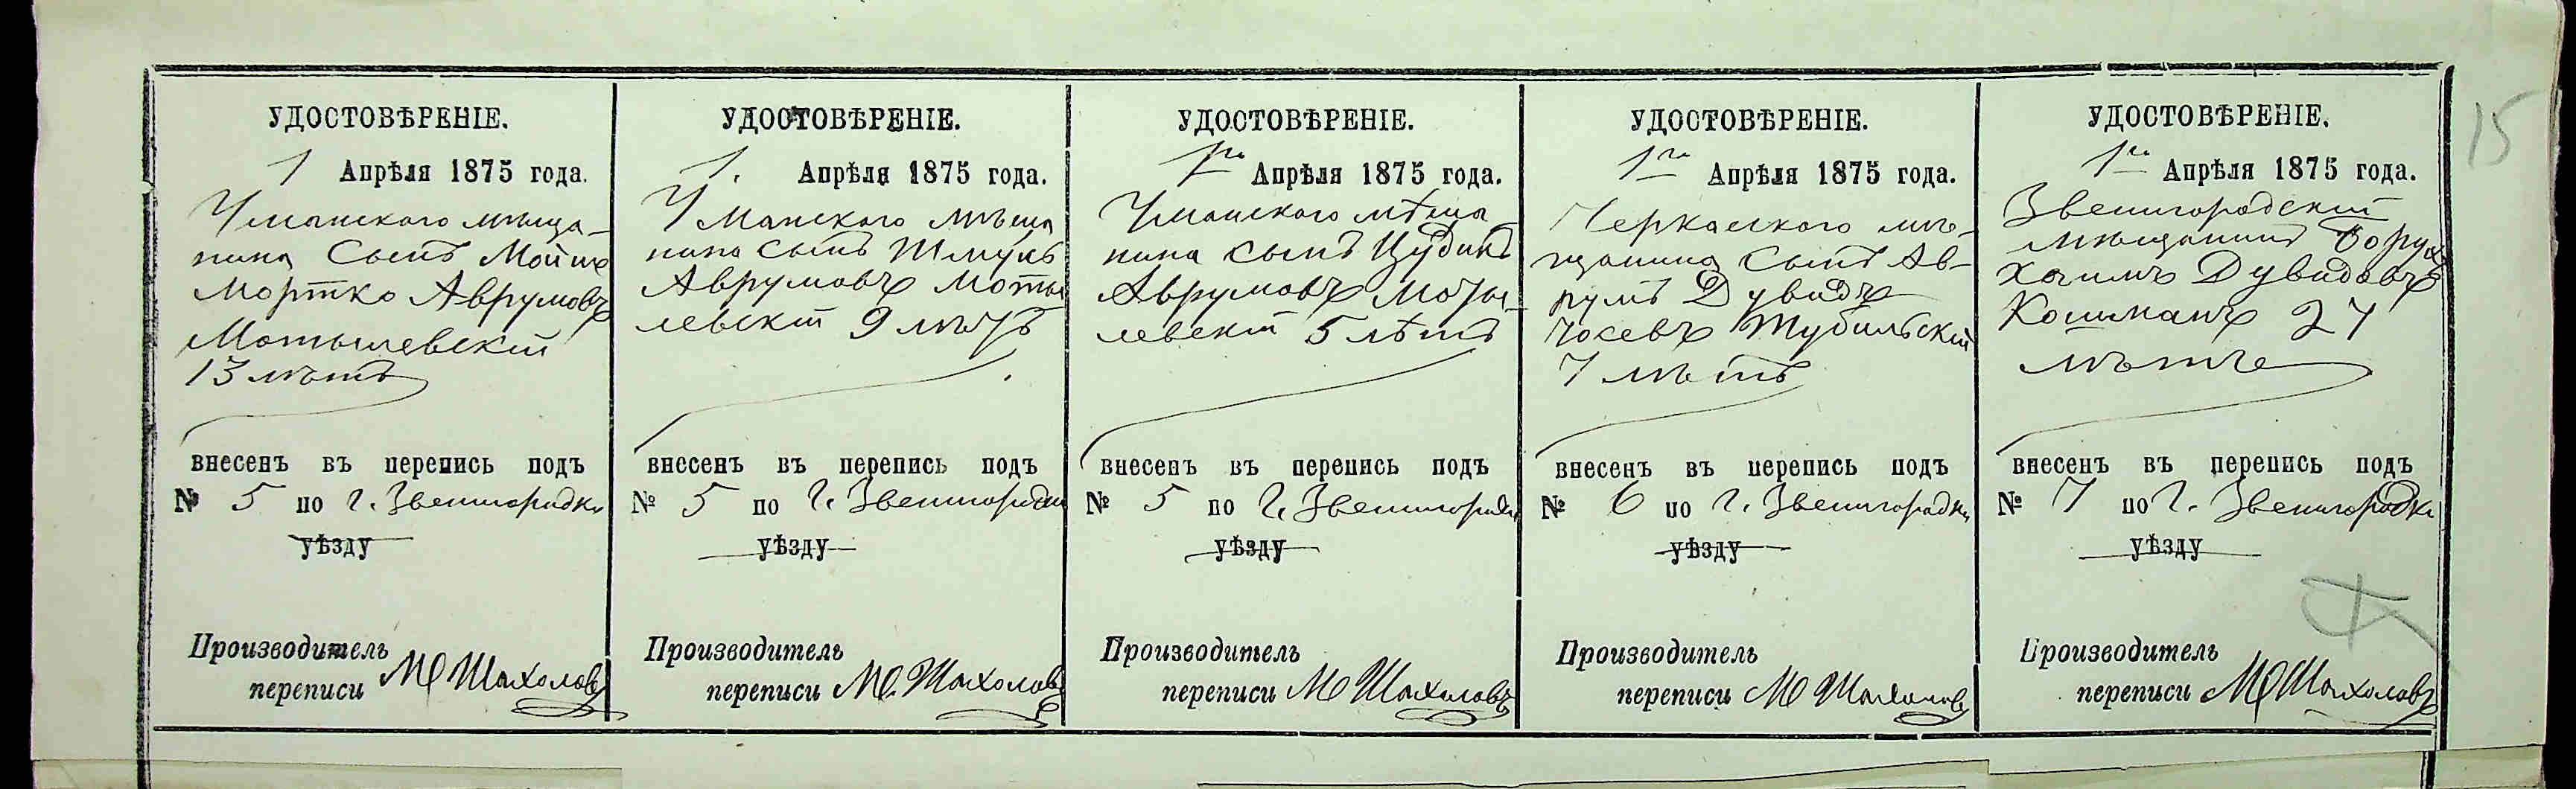 15
УДОСТОВѢРЕНІЕ.
1 Апрѣля 1875 года.
Уманского мѣща-
нина Сынъ Мойше
Мортко Аврумовъ
Мотылевскій
13 лѣтъ
внесенъ въ перепись подъ
№ 5 по г. Звенигородки
уѣзду
Производитель
переписи М Шахолов
УДОСТОВѢРЕНІЕ.
1. Апрѣля 1875 года.
Уманского мѣща
нина сынъ Шмуль
Аврумовъ Моты
левскій 9 лѣтъ
внесенъ въ перепись подъ
№ 5 по г. Звенигородки
уѣзду
Производитель
переписи М. Шахолов
УДОСТОВѢРЕНІЕ.
1го Апрѣля 1875 года.
Уманского мѣща
нина сынъ
Аврумовъ Моты-
левскій 5 лѣтъ
внесенъ въ перепись подъ
№ 5 по г. Звенигородки
уѣзду
Производитель
переписи М Шахоловъ
УДОСТОВѢРЕНІЕ.
1го Апрѣля 1875 года.
Черкаского мѣ-
щанина Сынъ Ав-
румъ Дувидъ
Іосевъ Тубильскій
7 лѣтъ
внесенъ въ перепись подъ
№ 6 по г. Звенигородки
уѣзду
Производитель
переписи М Шахолов
УДОСТОВѢРЕНІЕ.
1го Апрѣля 1875 года.
Звенигородскій
мѣщанинъ Борух
Хаимъ Дувидовъ
Кошманъ 27
лѣтъ
внесенъ въ перепись подъ
№ 7 по г. Звенигородки
уѣзду
Производитель
переписи М Шахоловъ